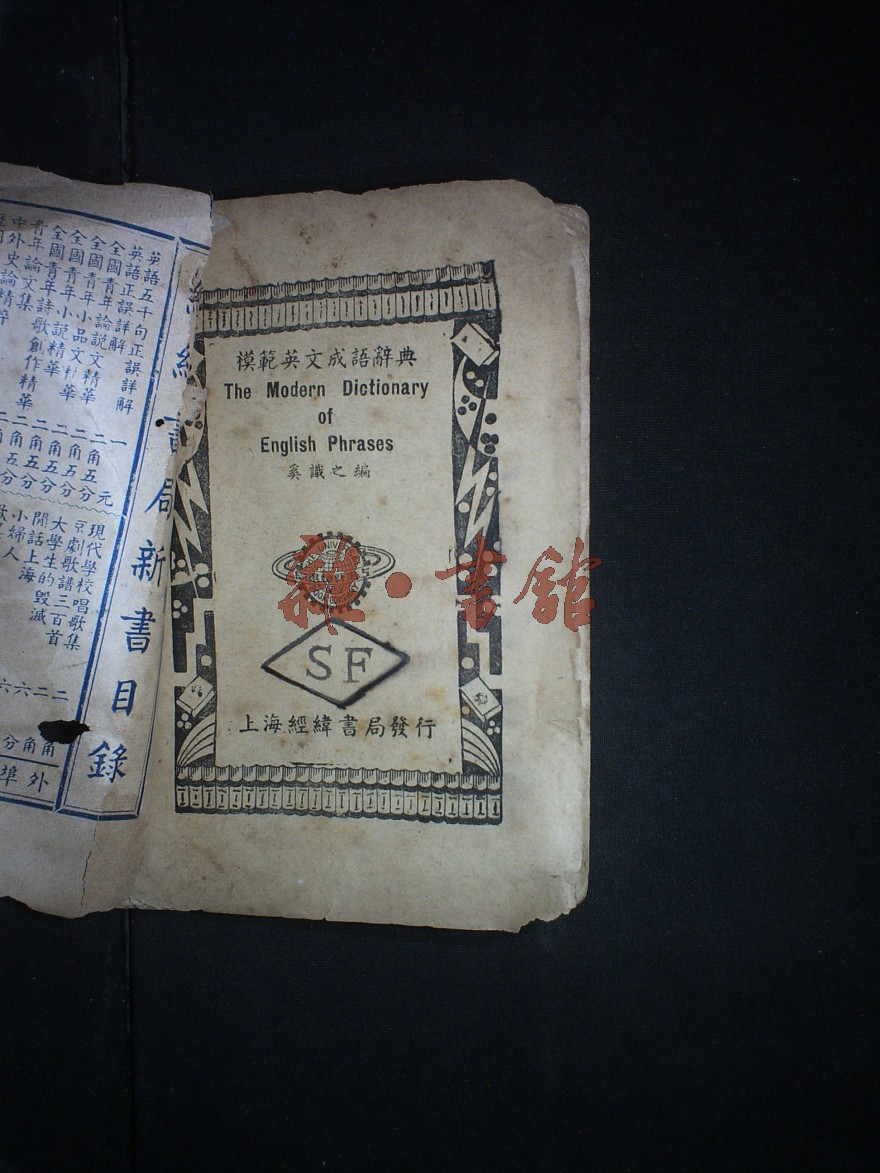 模範英文成語辭典
The Modern Dictionary
of
English Phrases
奚識之編
SF
上海經緯書局發行
雜·書館
經緯書局新書目錄
英語五千句正誤詳解
英語正誤詳解
全國青年論說文精華
全國青年小品文精華
全國青年小說精華
青年詩歌創作精華
論文集
中外史論精粹
一元
二角五分
二角五分
二角五分
二角五分
現代學校唱歌集
京劇歌譜三百首
大學生的毀滅
閒話上海
小婦人
二角
二角
六分
外埠